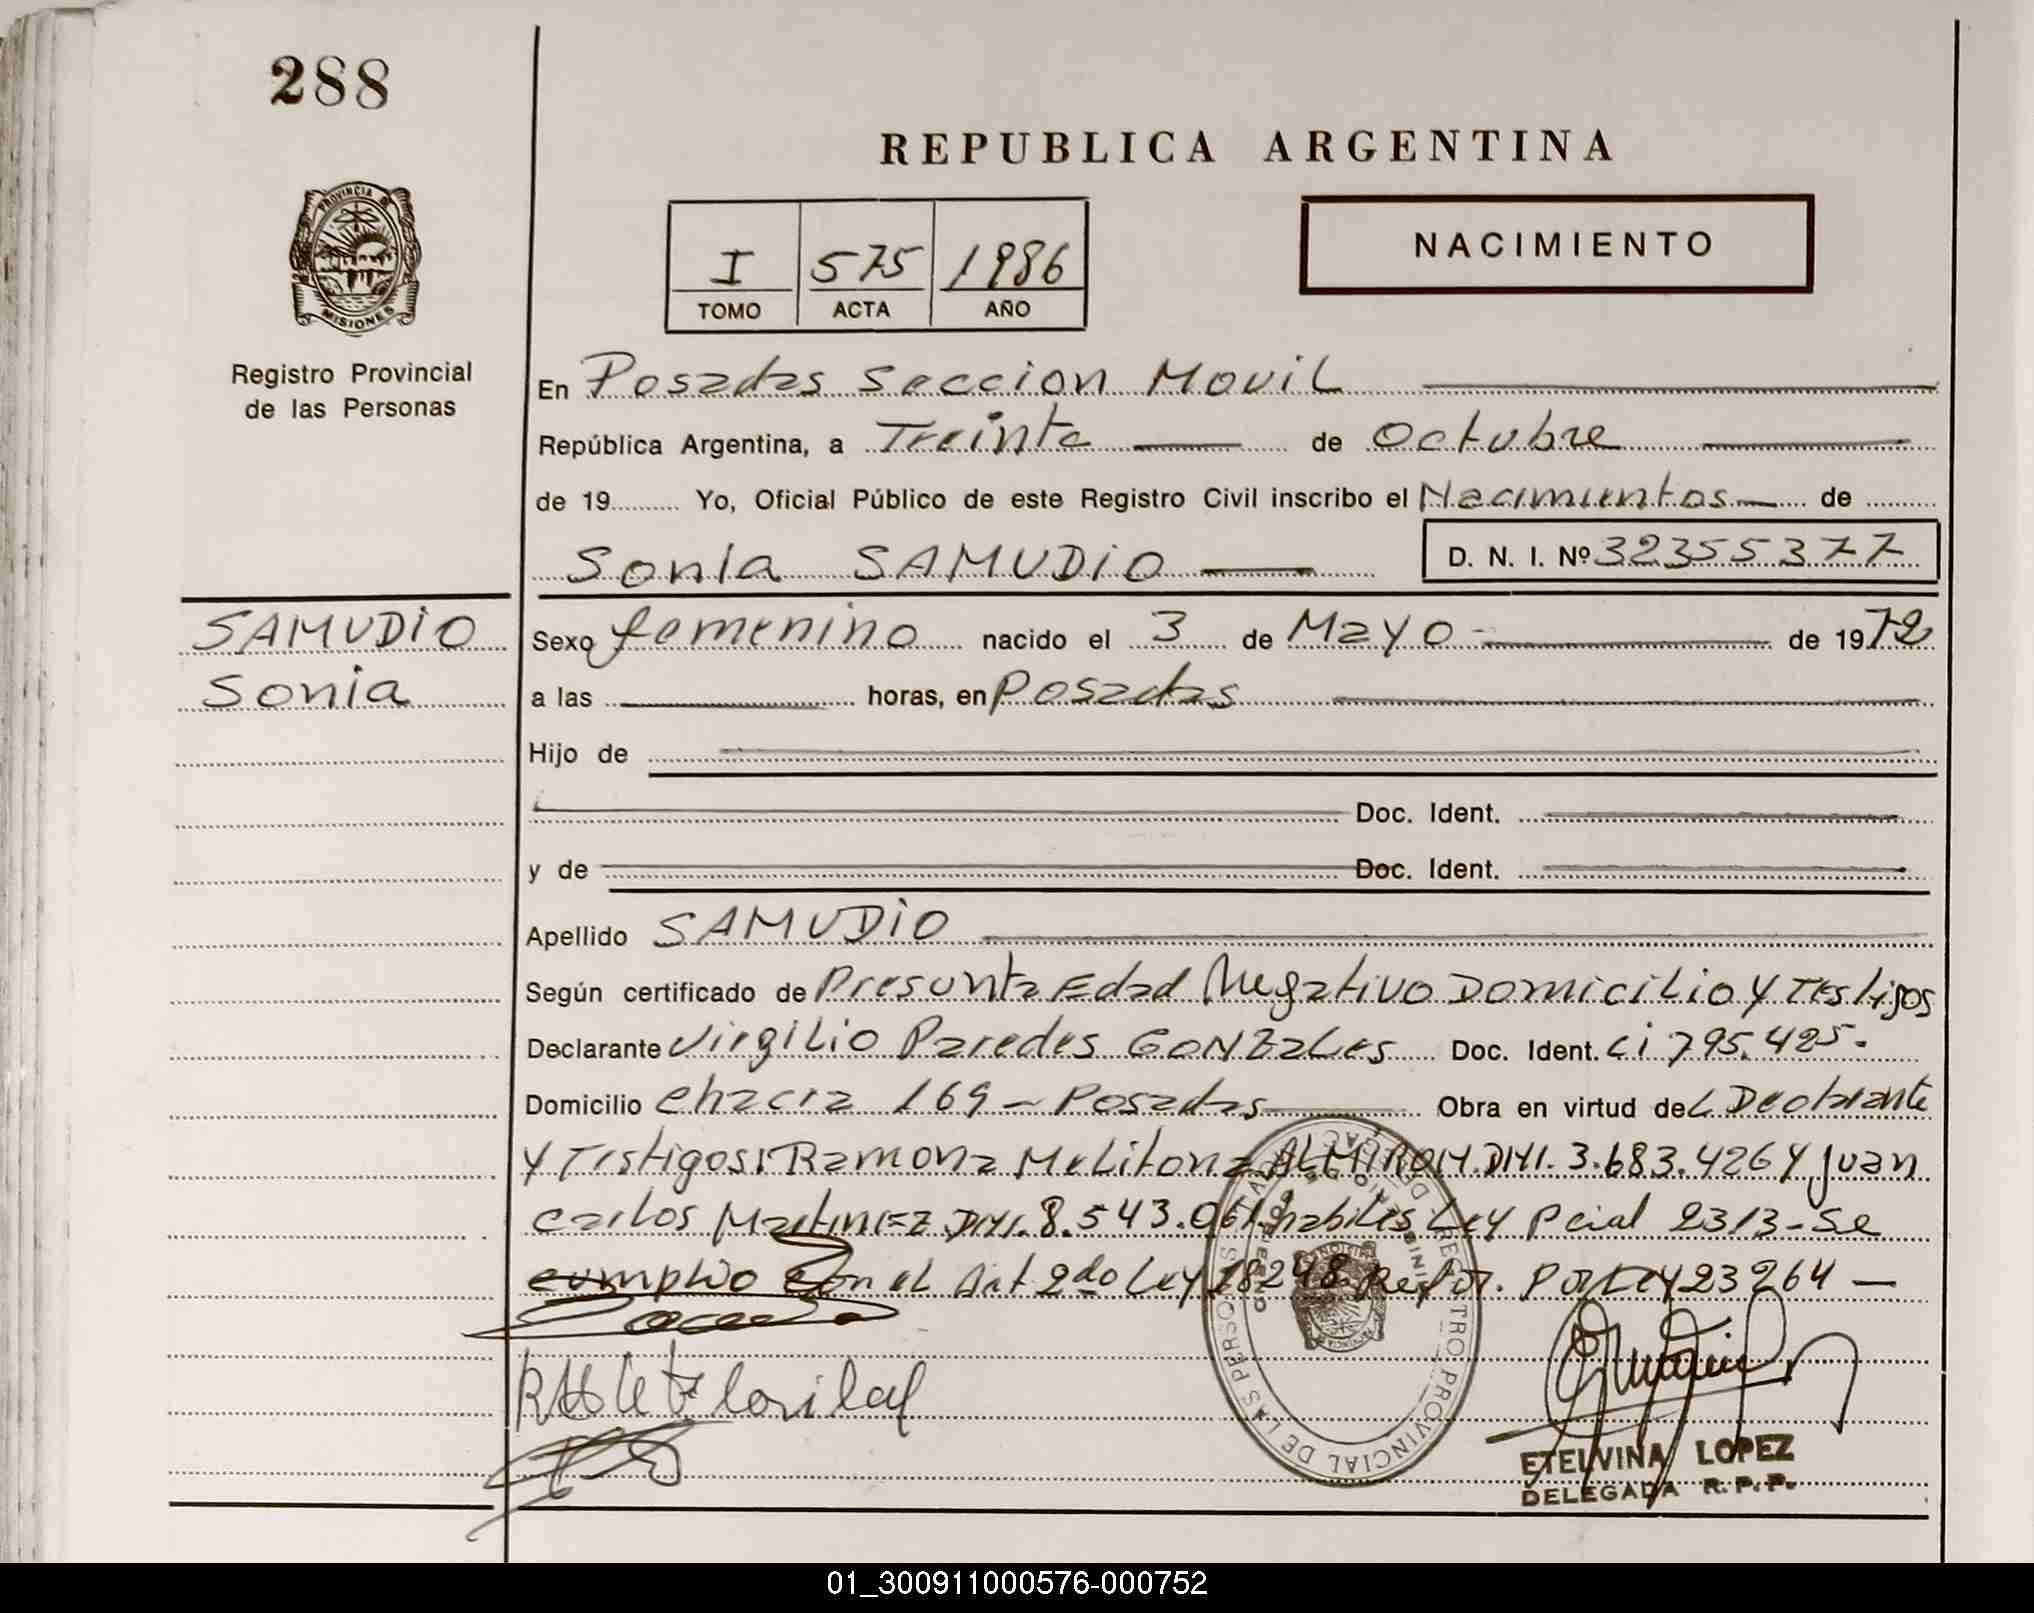 288
REPUBLICA ARGENTINA
PROVINCIA D
MISIONES
Registro Provincial
de las Personas
I 575 1986
TOMO ACTA AÑO
NACIMIENTO
En Posadas Seccion Movil
República Argentina, a Treinta de Octubre
de 19 Yo, Oficial Público de este Registro Civil inscribo el Nacimientos de
Sonia SAMUDIO D. N. I. Nº 32355377
SAMUDIO
Sonia
Sexo femenino nacido el 3 de Mayo de 1972
a las horas, en Posadas
Hijo de
Doc. Ident.
y de Doc. Ident.
Apellido SAMUDIO
Según certificado de Presunta Edad Negativo Domicilio y Testigos
Declarante Virgilio Paredes GONZALES Doc. Ident. Ci 795.425.
Domicilio Chacra 169 - Posadas Obra en virtud del Declarante
y Testigos: Ramona Melitona ALMIRON.DNI.3.683.426 y Juan
Carlos Martinez DNI.8.543.061 habiles Ley Pcial 2313-Se
cumplio con el Art 2do Ley 18248 Refor. Por Ley 23264
REGISTRO PROVINCIAL DE LAS PERSONAS
ETELVINA LOPEZ
DELEGADA R.P.P.
01_300911000576-000752